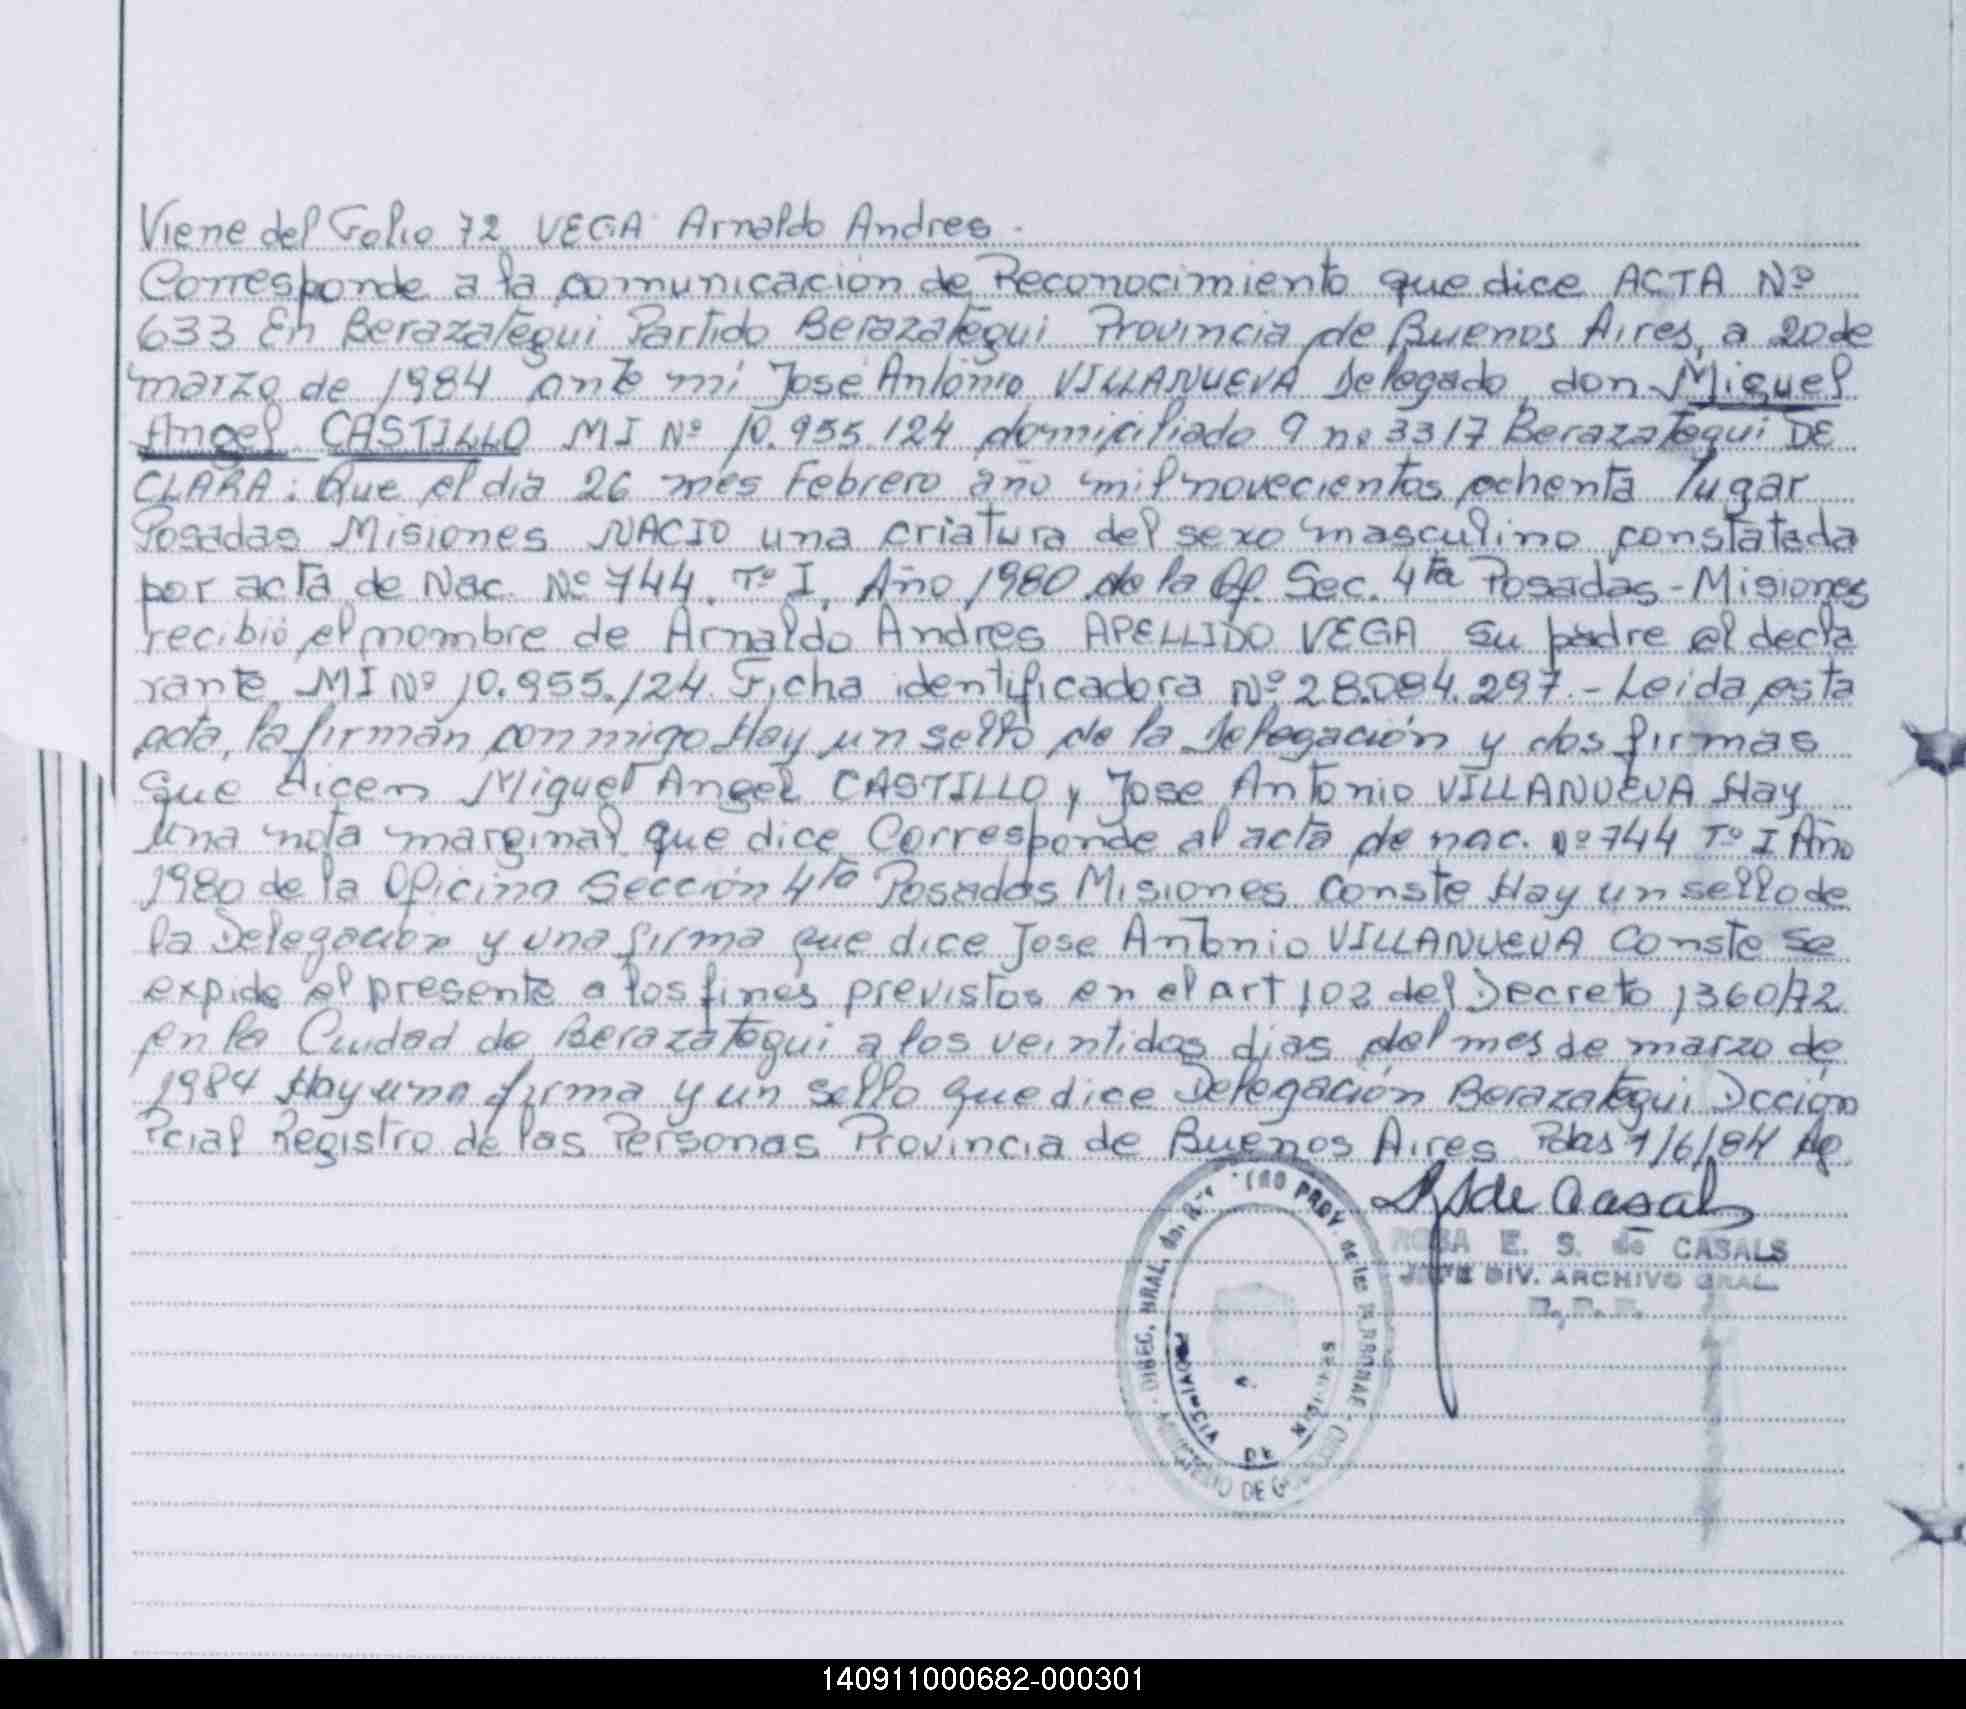 Viene del Folio 72 VEGA Arnaldo Andres.
Corresponde a la comunicación de Reconocimiento que dice ACTA Nº
633 En Berazategui Partido Berazategui Provincia de Buenos Aires, a 20 de
marzo de 1984 ante mi José Antonio VILLANUEVA Delegado don Miguel
Angel CASTILLO MI Nº 10.955.124 domiciliado 9 nº 3317 Berazategui DE
CLARA: Que el dia 26 mes Febrero año mil novecientos ochenta lugar
Posadas Misiones NACIO una criatura del sexo masculino constatada
por acta de Nac. Nº 744. Tº I. Año 1980 de la Of. Sec. 4ta Posadas - Misiones
recibió el nombre de Arnaldo Andres APELLIDO VEGA su padre el decla
rante MI Nº 10.955.124. Ficha identificadora Nº 28.084.297.- Leida esta
acta, la firman conmigo Hay un sello de la Delegación y dos firmas
que dicen Miguel Angel CASTILLO y Jose Antonio VILLANUEVA Hay
una nota marginal que dice Corresponde al acta de nac. Nº 744 Tº I Año
1980 de la Oficina Sección 4ta Posadas Misiones Conste Hay un sello de
la Delegación y una firma que dice Jose Antonio VILLANUEVA Conste Se
expide el presente a los fines previstos en el art 102 del Decreto 1360/72
en la Ciudad de Berazategui a los veintidos dias del mes de marzo de
1984 Hay una firma y un sello que dice Delegación Berazategui Dcción
Pcial Registro de las Personas Provincia de Buenos Aires Pdas 1/6/84
de Casals
ROSA E. S. de CASALS
JEFE DIV. ARCHIVO GRAL
DIREC. GRAL. del PROV. de las PERSONAS
MINISTERIO DE
PROVINCIA DE
140911000682-000301